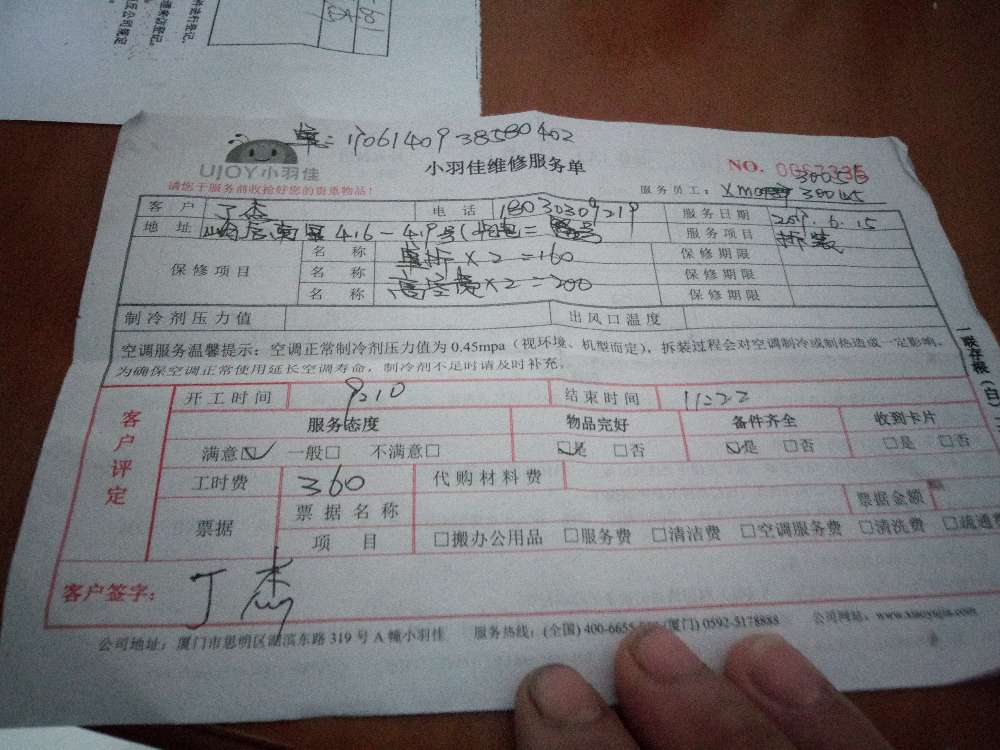 件进行登记。
理来访登记。
反公司规定
单:1706140938580402
UJOY小羽佳
小羽佳维修服务单
NO.
请您于服务前收捡好您的贵重物品!
服务员工:
300365
380145
客户 丁杰 电话 18030309219 服务日期 2017.6.15
地址 416-419号 服务项目 拆装
保修项目 名称 单拆×2=160 保修期限
名称 高空费×2=200 保修期限
名称 保修期限
制冷剂压力值 出风口温度
空调服务温馨提示:空调正常制冷剂压力值为0.45mpa(视环境、机型而定),拆装过程会对空调制冷或制热造成一定影响,
为确保空调正常使用延长空调寿命,制冷剂不足时请及时补充。
一联存根(白)
客户评定
开工时间 9:10 结束时间 11:22
服务态度 物品完好 备件齐全 收到卡片
满意☑ 一般□ 不满意□ ☑是 □否 ☑是 □否 □是 □否
工时费 360 代购材料费
票据 票据名称 票据金额
项目 □搬办公用品 □服务费 □清洁费 □空调服务费 □清洗费 □疏通
客户签字: 丁杰
公司地址:厦门市思明区湖滨东路319号A幢小羽佳 服务热线:(全国)400-6655 (厦门)0592-5178888 公司网站:www.xiaoyujia.com